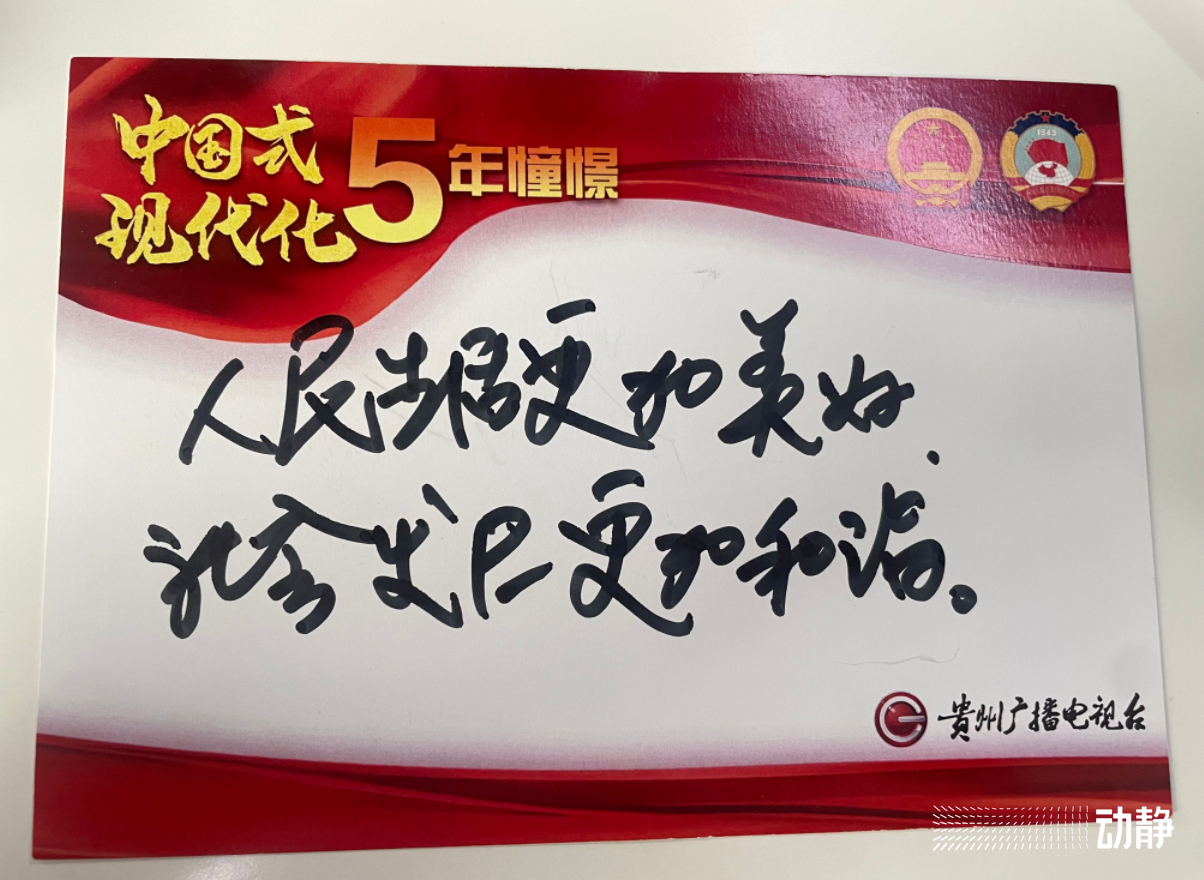 中国式
现代化5年憧憬
1949
人民更加美好.
社会发展更加和谐。
贵州广播电视台
动静